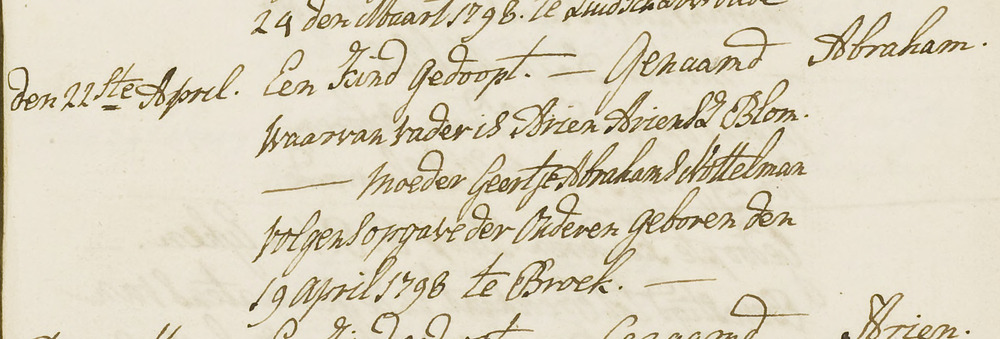 24 den Maart 1798. te Zuidscharwoude
den 22ste April. Een Kind gedoopt. — Genaamd Abraham.
waarvan vader is Arien Ariensz Blom.
— Moeder Geertje Abrahams Nottelman
volgens opgave der Ouderen geboren den
19 April 1798 te Broek. —
Een Kind gedoopt Genaamd Arien.